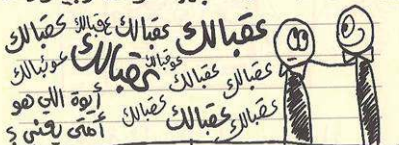 عقبالك عقبالك عقبالك عقبالك عقبالك
عقبالك عوقبالك عوئبالك
عقبالك عقبالك عقبالك
أيوة اللي هو عقبالك عقبالك عقبالك
أمتى يعني ؟